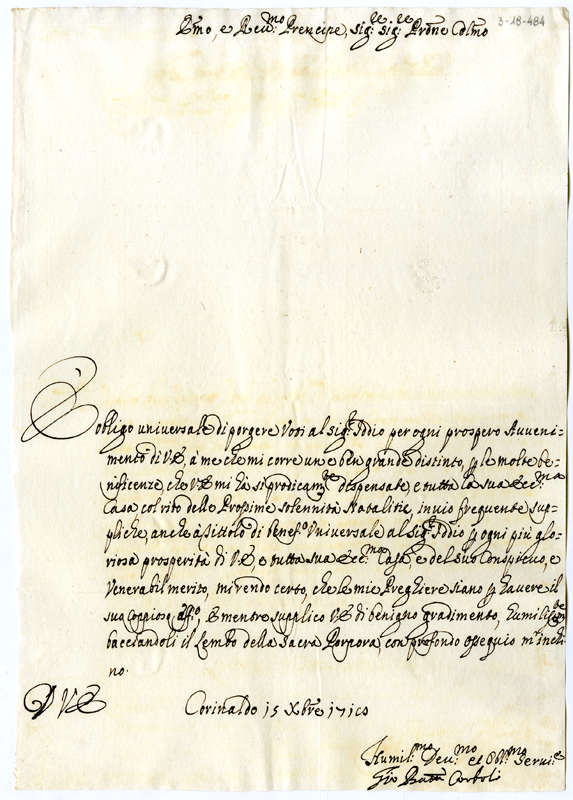 Emo, e Reu:mo Prencipe, Sig:re Sig:re Prone Colmo
3-18-484
È obligo universale di porgere Voti al Sig:r Iddio per ogni prospero Auveni=
mento di VE, à me che mi corre un e ben grande distinto, p le molte be=
nificenze, che VE mi hà si prodicam:te dispensate, e tutta la sua Ecc:ma
Casa col rito delle Prossime solennità Natalitie, invio frequente sup=
pliche, anche à sittolo di benef:o Universale al Sig:r Iddio p ogni più glo=
riosa prosperità di VE e tutta sua Ecc:ma Casa, e del suo Conspicuo, e
Venerabil merito, mi rendo certo, che le mie Preghiere siano p havere il
suo coppioso aff:o, E mentre supplico VE di benigno gradimento, humilis:te
bacciandoli il Lembo della Sacra Porpora, con profondo ossequio m'inchi=
no.
D V E
Corinaldo 15 Xbre 1710
Humil:mo Deu:mo et Obl:mo Serui:e
Gio Batta Corboli